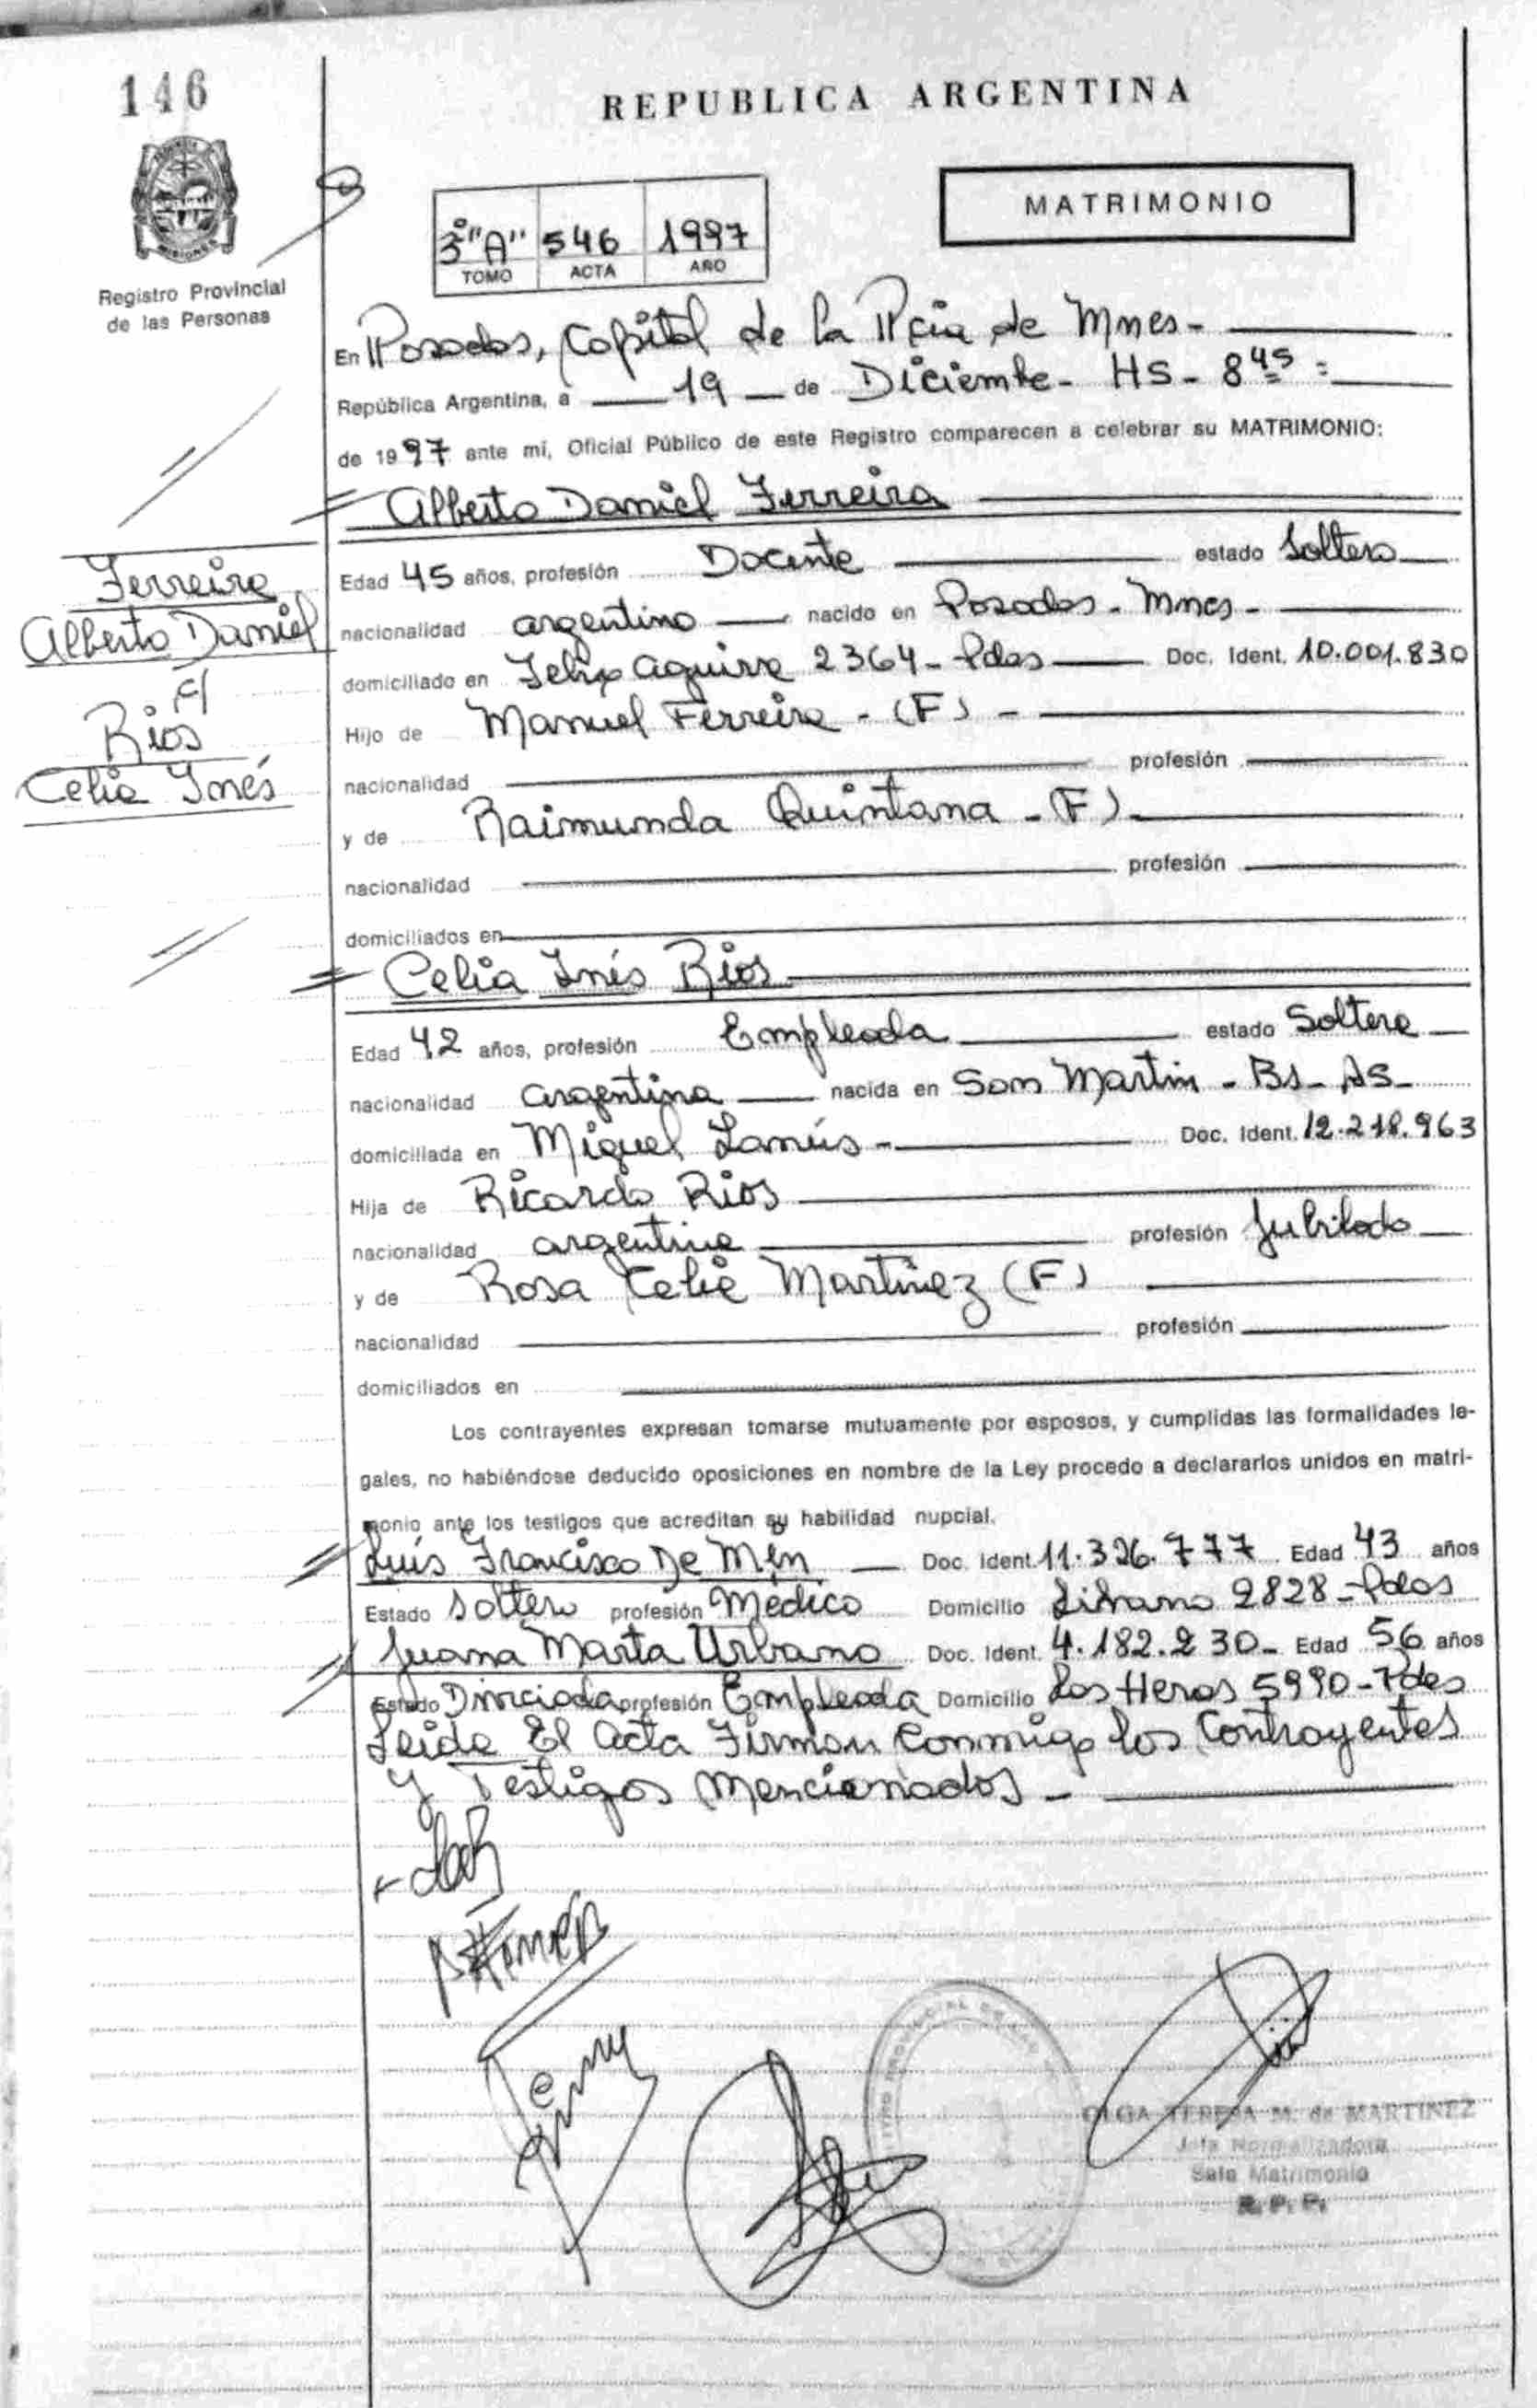 146
REPUBLICA ARGENTINA
MATRIMONIO
3º "A" 546 1997
TOMO ACTA AÑO
Registro Provincial
de las Personas
En Posadas, Capital de la Pcia de Mnes-
República Argentina, a 19 de Diciembre - HS - 8 45
de 1997 ante mi, Oficial Público de este Registro comparecen a celebrar su MATRIMONIO:
Alberto Daniel Ferreira
Edad 45 años, profesión Docente estado Soltero
nacionalidad argentino nacido en Posadas - Mnes -
domiciliado en Felix Aguirre 2364 - Pdas Doc. Ident. 10.001.830
Hijo de Manuel Ferreira - (F) -
nacionalidad profesión
y de Raimunda Quintana - (F)
nacionalidad profesión
domiciliados en
Ferreira
Alberto Daniel
c/
Rios
Celia Inés
Celia Inés Rios
Edad 42 años, profesión Empleada estado Soltera
nacionalidad argentina nacida en San Martin - Bs - As -
domiciliada en Miguel Lanús - Doc. Ident. 12.218.963
Hija de Ricardo Rios
nacionalidad argentina profesión Jubilado
y de Rosa Celia Martinez (F)
nacionalidad profesión
domiciliados en
Los contrayentes expresan tomarse mutuamente por esposos, y cumplidas las formalidades le-
gales, no habiéndose deducido oposiciones en nombre de la Ley procedo a declararlos unidos en matri-
monio ante los testigos que acreditan su habilidad nupcial.
Luis Francisco De Doc. Ident. 11.326.777 Edad 43 años
Estado Soltero profesión Médico Domicilio Libano 2828 - Pdas
Juana Marta Urbano Doc. Ident. 4.182.230 - Edad 56 años
Estado Divorciada profesión Empleada Domicilio Las Heras 5990 - Pdas
Leida El Acta Firman Conmigo los Contrayentes
y Testigos Mencionados -
OLGA TERESA M. de MARTINEZ
Jefa Normalizadora
Sala Matrimonio
R. P. P.